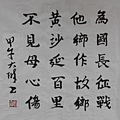 為國長征戰
他鄉作故鄉
黃沙延百里
不見母心傷
甲午大啓書